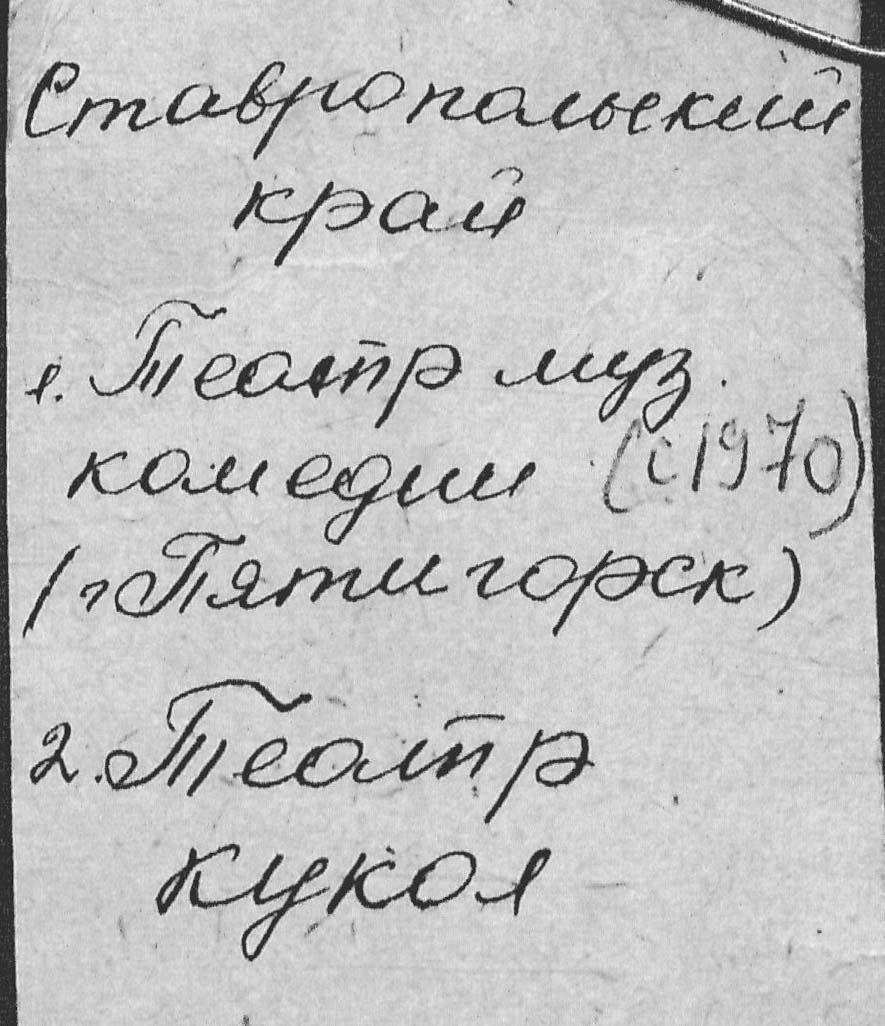 Ставропольский
край
1. Театр муз.
комедии (с 1970)
(г Пятигорск)
2. Театр
кукол